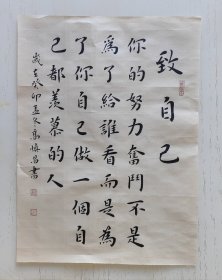 致自己
你的努力奮鬥不是
爲了給誰看而是為
了你自己做一個自
己都羨慕的人
歲在癸卯孟冬高順昌書